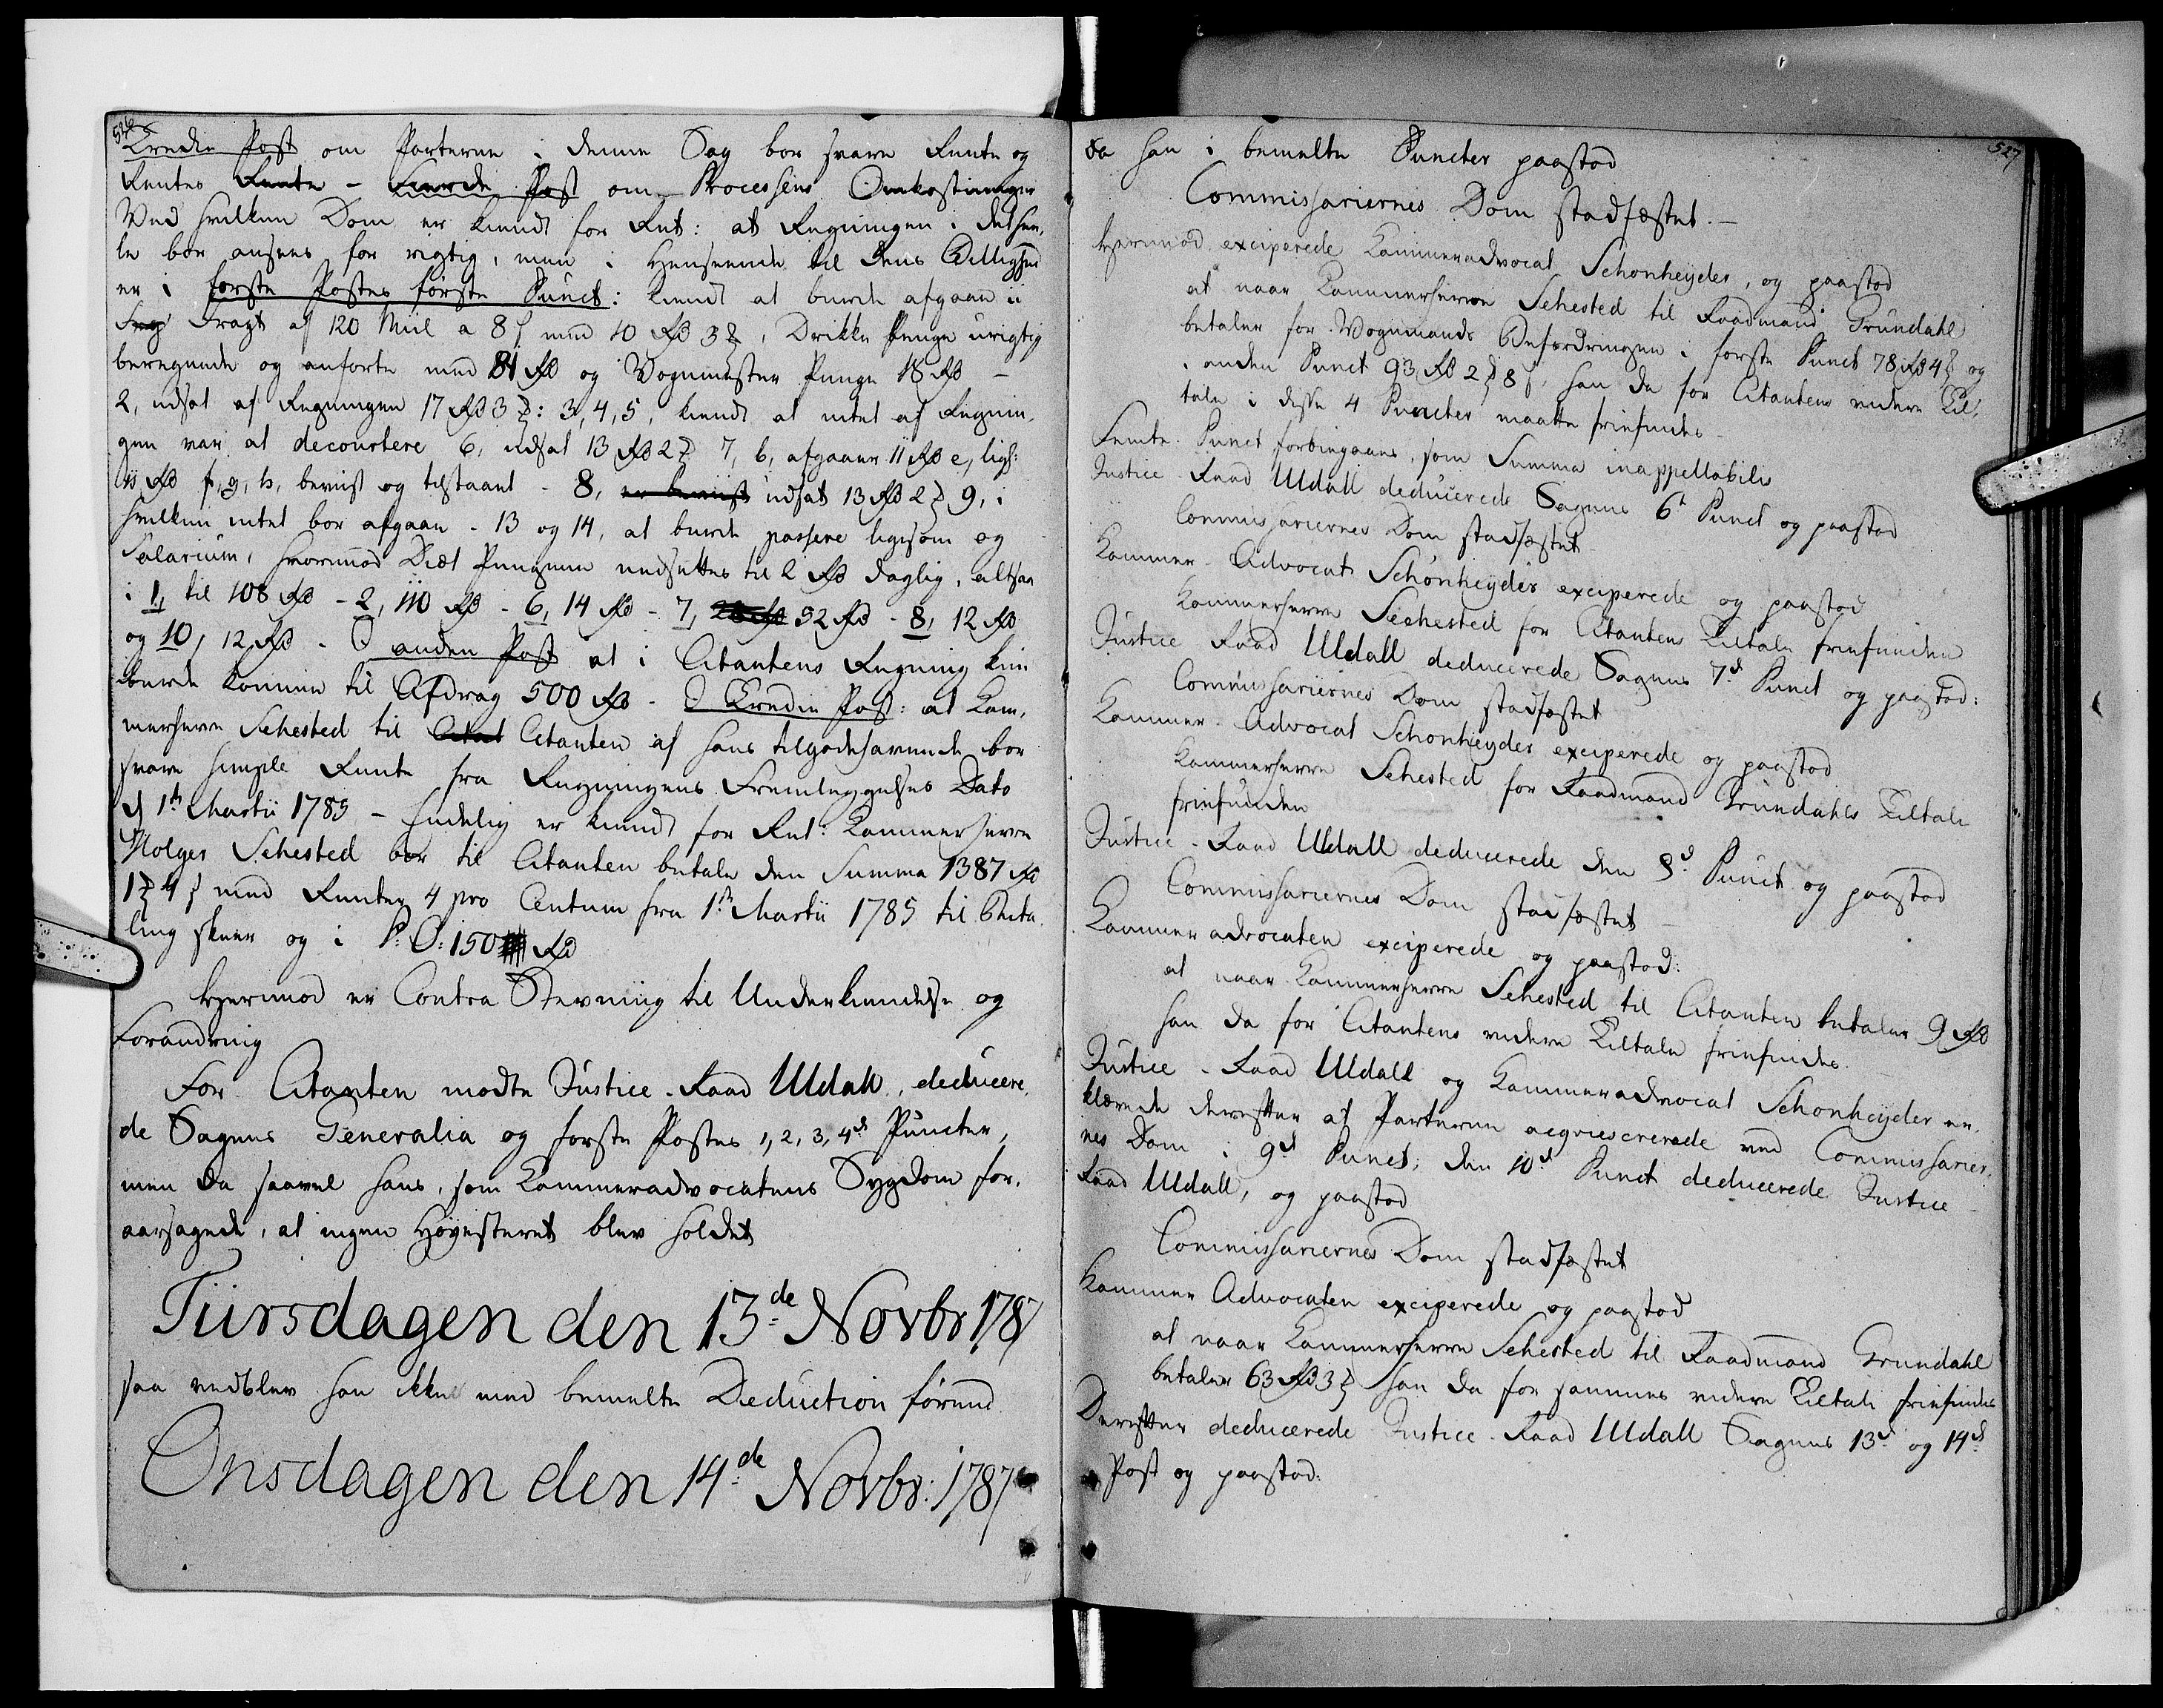 526
Tredie Post om Parterne i denne Sag bør svare Rente og
Rentes Rente - Fierde Post om Processens Omkostninger
Ved hvilken Dom er kiendt for Ret: at Regningen i det hee,
le bør ansees for rigtig, men i Henseende til dens Billighed
er i første Postes første Punct: kiendt at burde afgaae
Fragt af 120 Miil a 8 ß med 10 Rd 3 , Drikke Penge urigtig
beregnede og anførte med 81 Rd og Vognmester Penge 18 Rd -
2, udsat af Regningen 17 Rd 3 : 3, 4, 5, kiendt at intet af Regnin,
gen var at decourtere 6, udsat 13 Rd 2 7, b, afgaaer 11 Rd e, lige
11 Rd f, g, h, beviist og tilstaaet - 8, er beviist udsat 13 Rd 2 9, i
hvilken intet bør afgaae - 13 og 14, at burde passere ligesom og
Salarium, hvorimod Diæt Pengene nedsættes til 2 Rd daglig, altsaa
i 1, til 108 Rd - 2, 110 Rd - 6, 14 Rd - 7, 28 Rd 32 Rd - 8, 12 Rd
og 10, 12 Rd - I anden Post at i Citantens Regning kun
burde komme til Afdrag 500 Rd - I Tredie Post: at Kam,
merherre Sehested til Citant Citanten af hans tilgodehavende bør
svare simple Rente fra Regningens Fremlæggelses Dato
d 1te Martii 1785 - Endelig er kiendt for Ret: Kammerherre
Holger Sehested bør til Citanten betale den Summa 1387 Rd
1 4 ß med Renter 4 pro Centum fra 1te Martii 1785 til Beta,
ling skeer og i P: O: 150 Rd
Hermod er Contra Stevning til Underkiendelse og
Forandring
For Citanten mødte Justice-Raad Uldall, deducere,
de Sagens Generalia og første Postes 1, 2, 3, 4de Puncter,
men da saavel hans, som Kammeradvocatens Sygdom for,
aarsagede, at ingen Høyesteret blev holdet
Tiirsdagen den 13de Novbr 1787
saa vedblev han ikke med bemelte Deduction førend
Onsdagen den 14de Novbr: 1787
527
da han i bemelte Puncter paastod
Commissariernes Dom stadfæstet. -
Hermod exciperede Kammeradvocat Schønheyder, og paastod
at naar Kammerherre Sehested til Raadmand Grundahl
betaler for Vognmands Befordringen i første Punct 78 Rd 4 og
i anden Punct 93 Rd 2 8 ß, han da for Citantens videre Til,
tale i disse 4 Puncter maatte friefindes -
Femte Punct forbigaaes, som Summa inappellabilis
Justice-Raad Uldall deducerede Sagens 6te Punct og paastod
Commissariernes Dom stadfæstet
Kammer-Advocat Schønheyder exciperede og paastod
Kammerherre Seehested for Citantens Tiltale friefunden
Justice Raad Uldall deducerede Sagens 7de Punct og paastod:
Commissariernes Dom stadfæstet
Kammer-Advocat Schønheyder exciperede og paastod
Kammerherre Sehested for Raadmand Grundahls Tiltale
friefunden
Justice-Raad Uldall deducerede den 8de Punct og paastod
Commissariernes Dom stadfæstet -
Kammeradvocaten exciperede og paastod:
at naar Kammerherre Sehested til Citanten betaler 9 Rd
han da for Citantens videre Tiltale friefindes.
Justice-Raad Uldall og Kammeradvocat Schønheyder er,
klærede derefter at Parterne acqviescerede ved Commissarier,
nes Dom i 9de Punct; den 10de Punct deducerede Justice -
Raad Uldall, og paastod
Commissariernes Dom stadfæstet
Kammer Advocaten exciperede og paastod
at naar Kammerherre Sehested til Raadmand Grundahl
betaler 63 Rd 3 han da for sammes videre Tiltale friefindes
Derefter deducerede Justice-Raad Uldall Sagens 13de og 14de
Post og paastod: